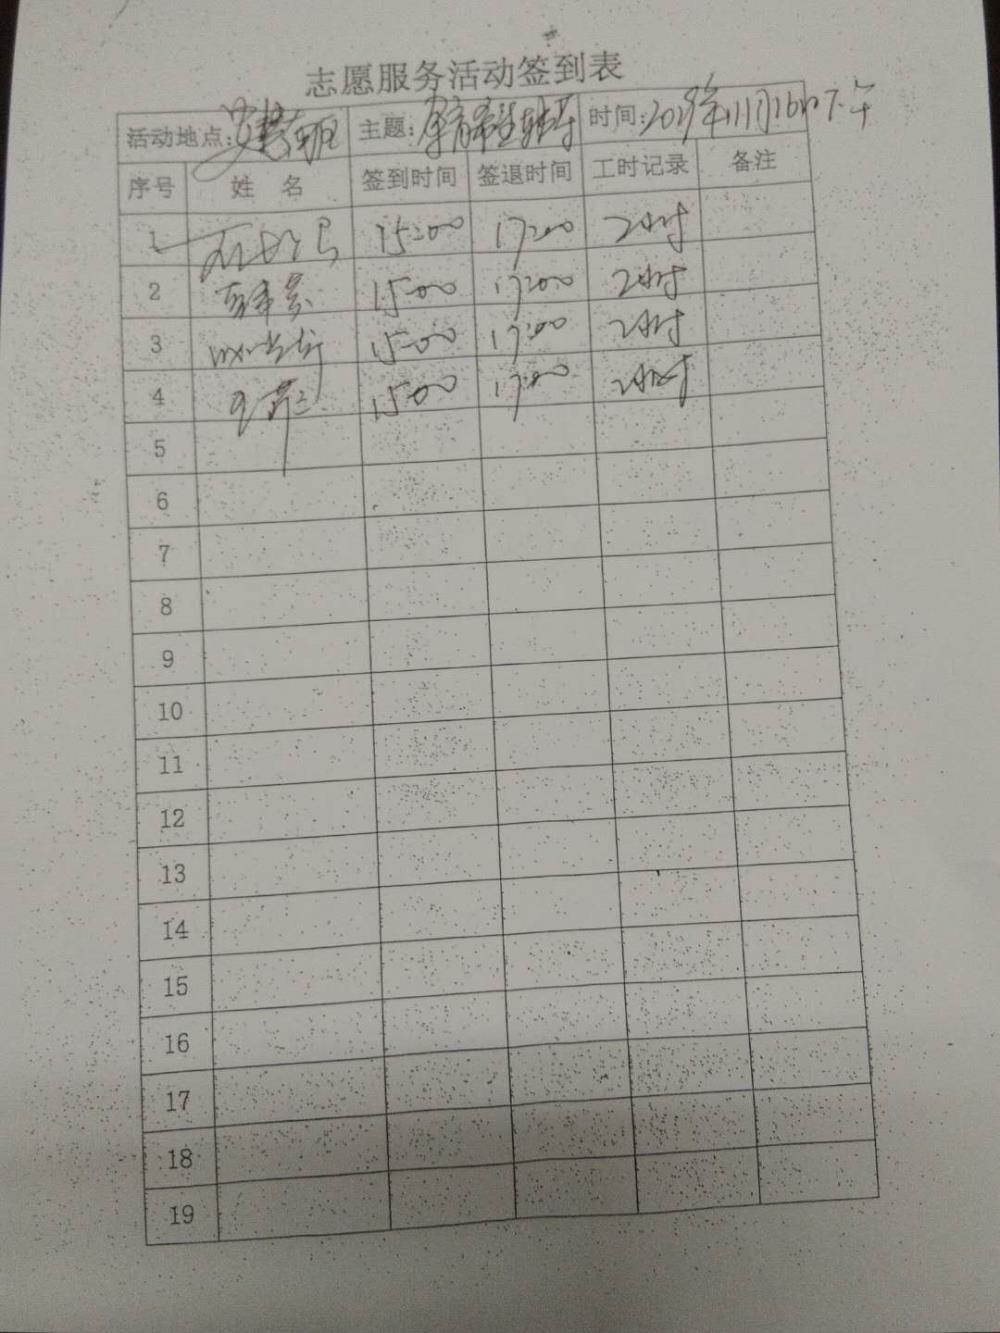 志愿服务活动签到表
活动地点: 主题: 时间:2019年11月16日下午
序号 姓 名 签到时间 签退时间 工时记录 备注
1 15:00 17:00 2小时
2 15:00 17:00 2小时
3 15:00 17:00 2小时
4 15:00 17:00 2小时
5
6
7
8
9
10
11
12
13
14
15
16
17
18
19